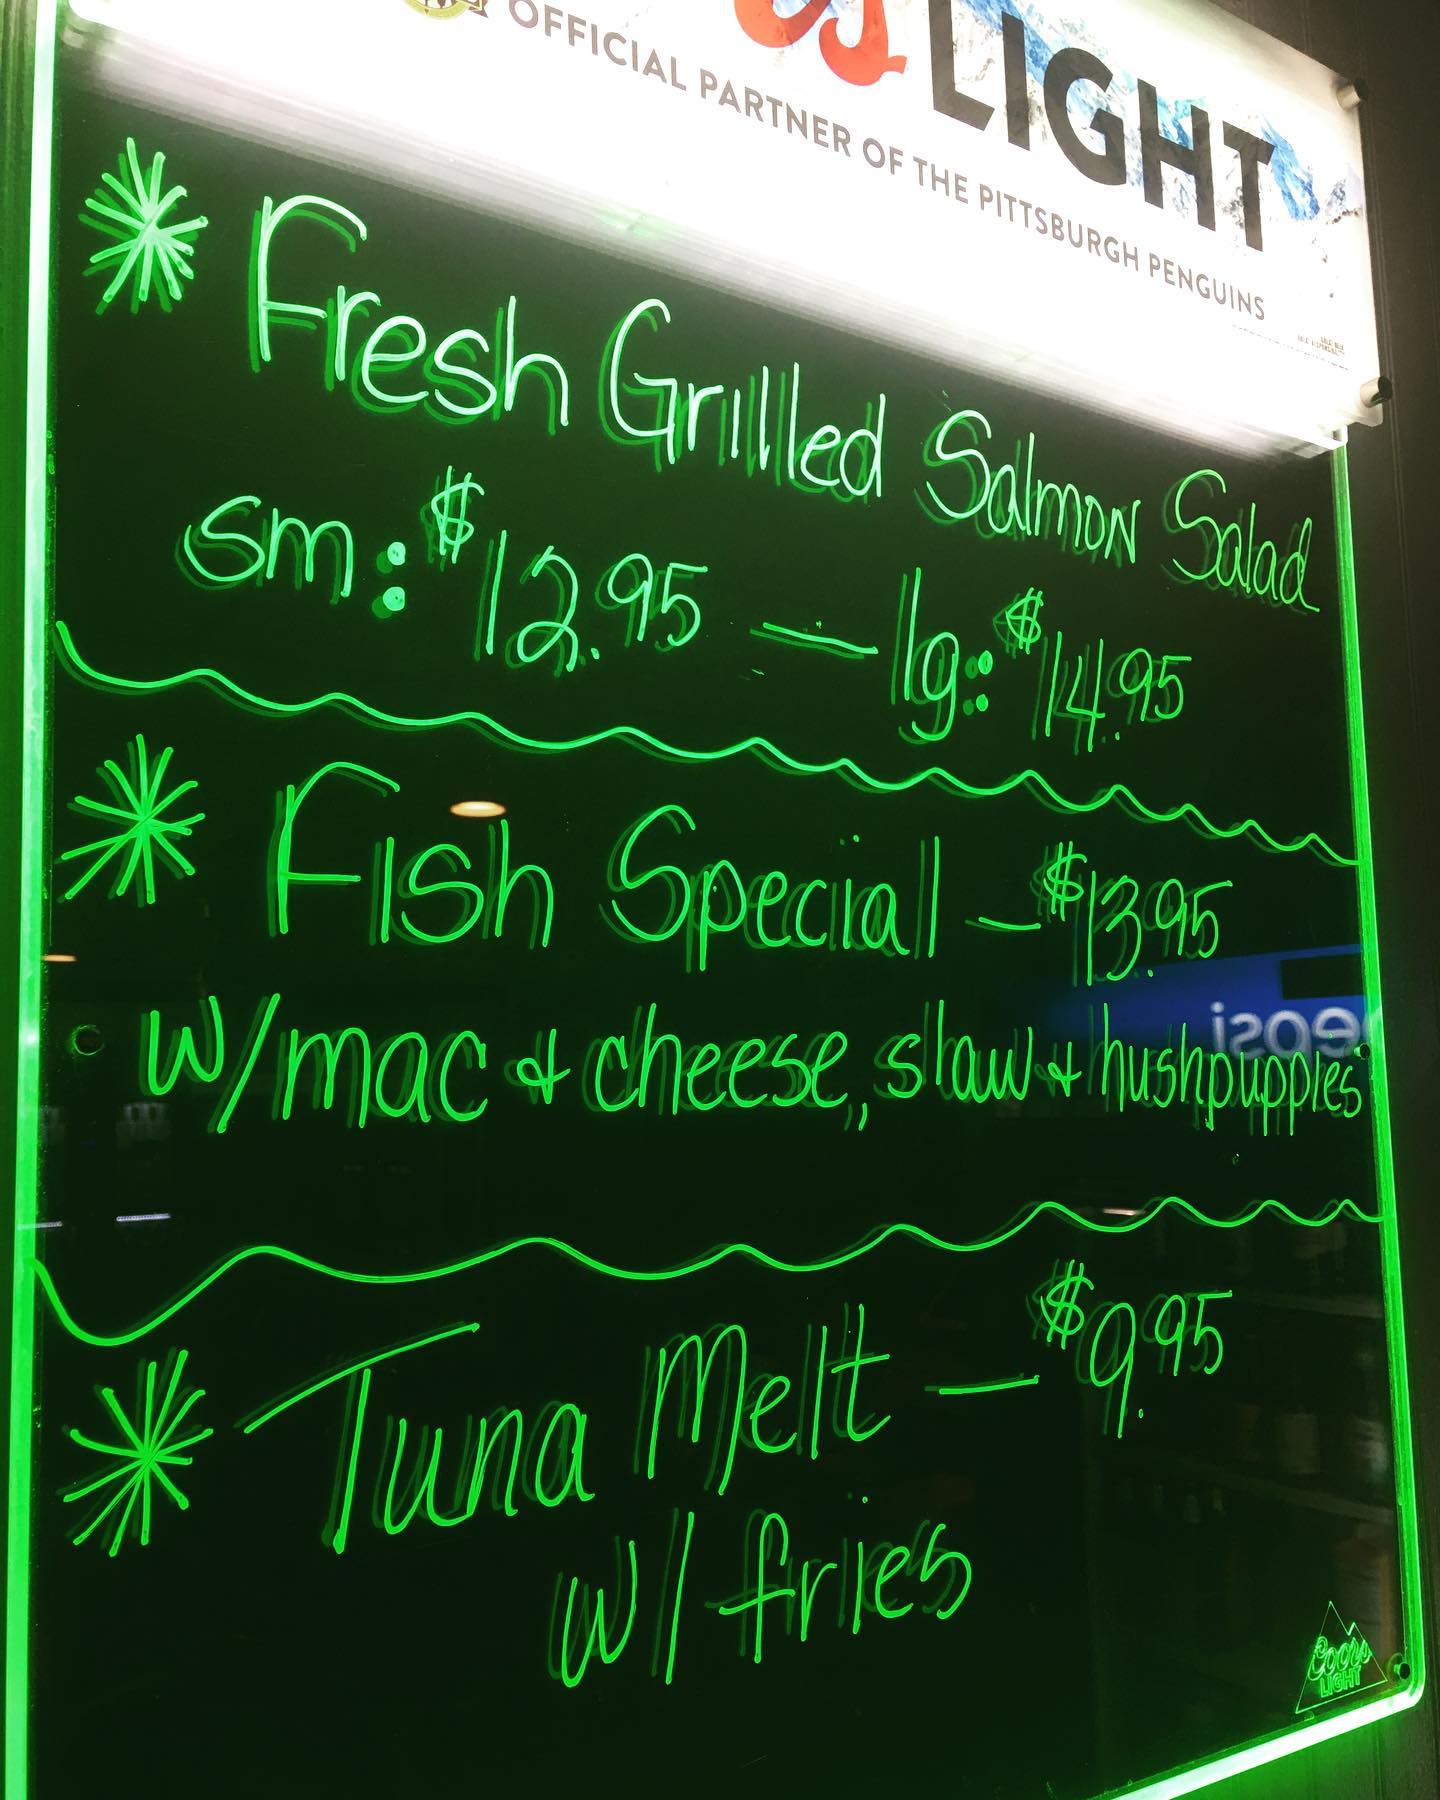 LIGHT
OFFICIAL PARTNER OF THE PITTSBURGH PENGUINS
Fresh Grilled Salmon Salad
sm: $12.95 — lg: $14.95
Fish Special — $13.95
w/mac & cheese, slaw & hushpuppies
Tuna Melt — $9.95
w/ fries
Coors
LIGHT